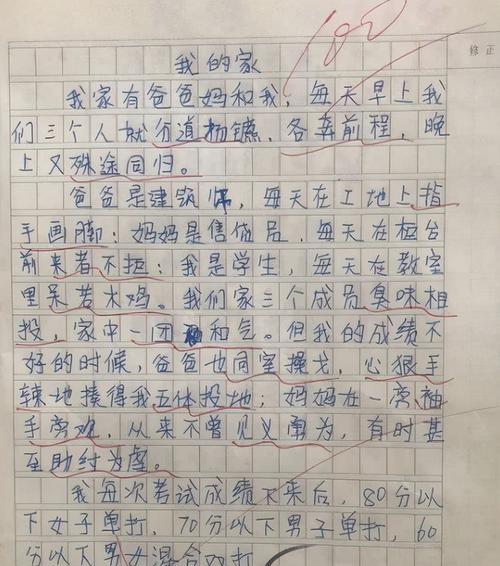 100
修正
我的家
我家有爸爸妈和我，每天早上我
们三个人就分道扬镳，各奔前程，晚
上又殊途同归。
爸爸是建筑师，每天在工地上指
手画脚；妈妈是售货员，每天在柜台
前来者不拒；我是学生，每天在教室
里呆若木鸡。我们家三个成员臭味相
投，家中一团和气。但我的成绩不
好的时候，爸爸也同室操戈，心狠手
辣地揍得我五体投地；妈妈在一旁袖
手旁观，从来不曾见义勇为，有时甚
至助纣为虐。
我每次考试成绩下来后，80分以
下女子单打，70分以下男子单打，60
分以下男女混合双打